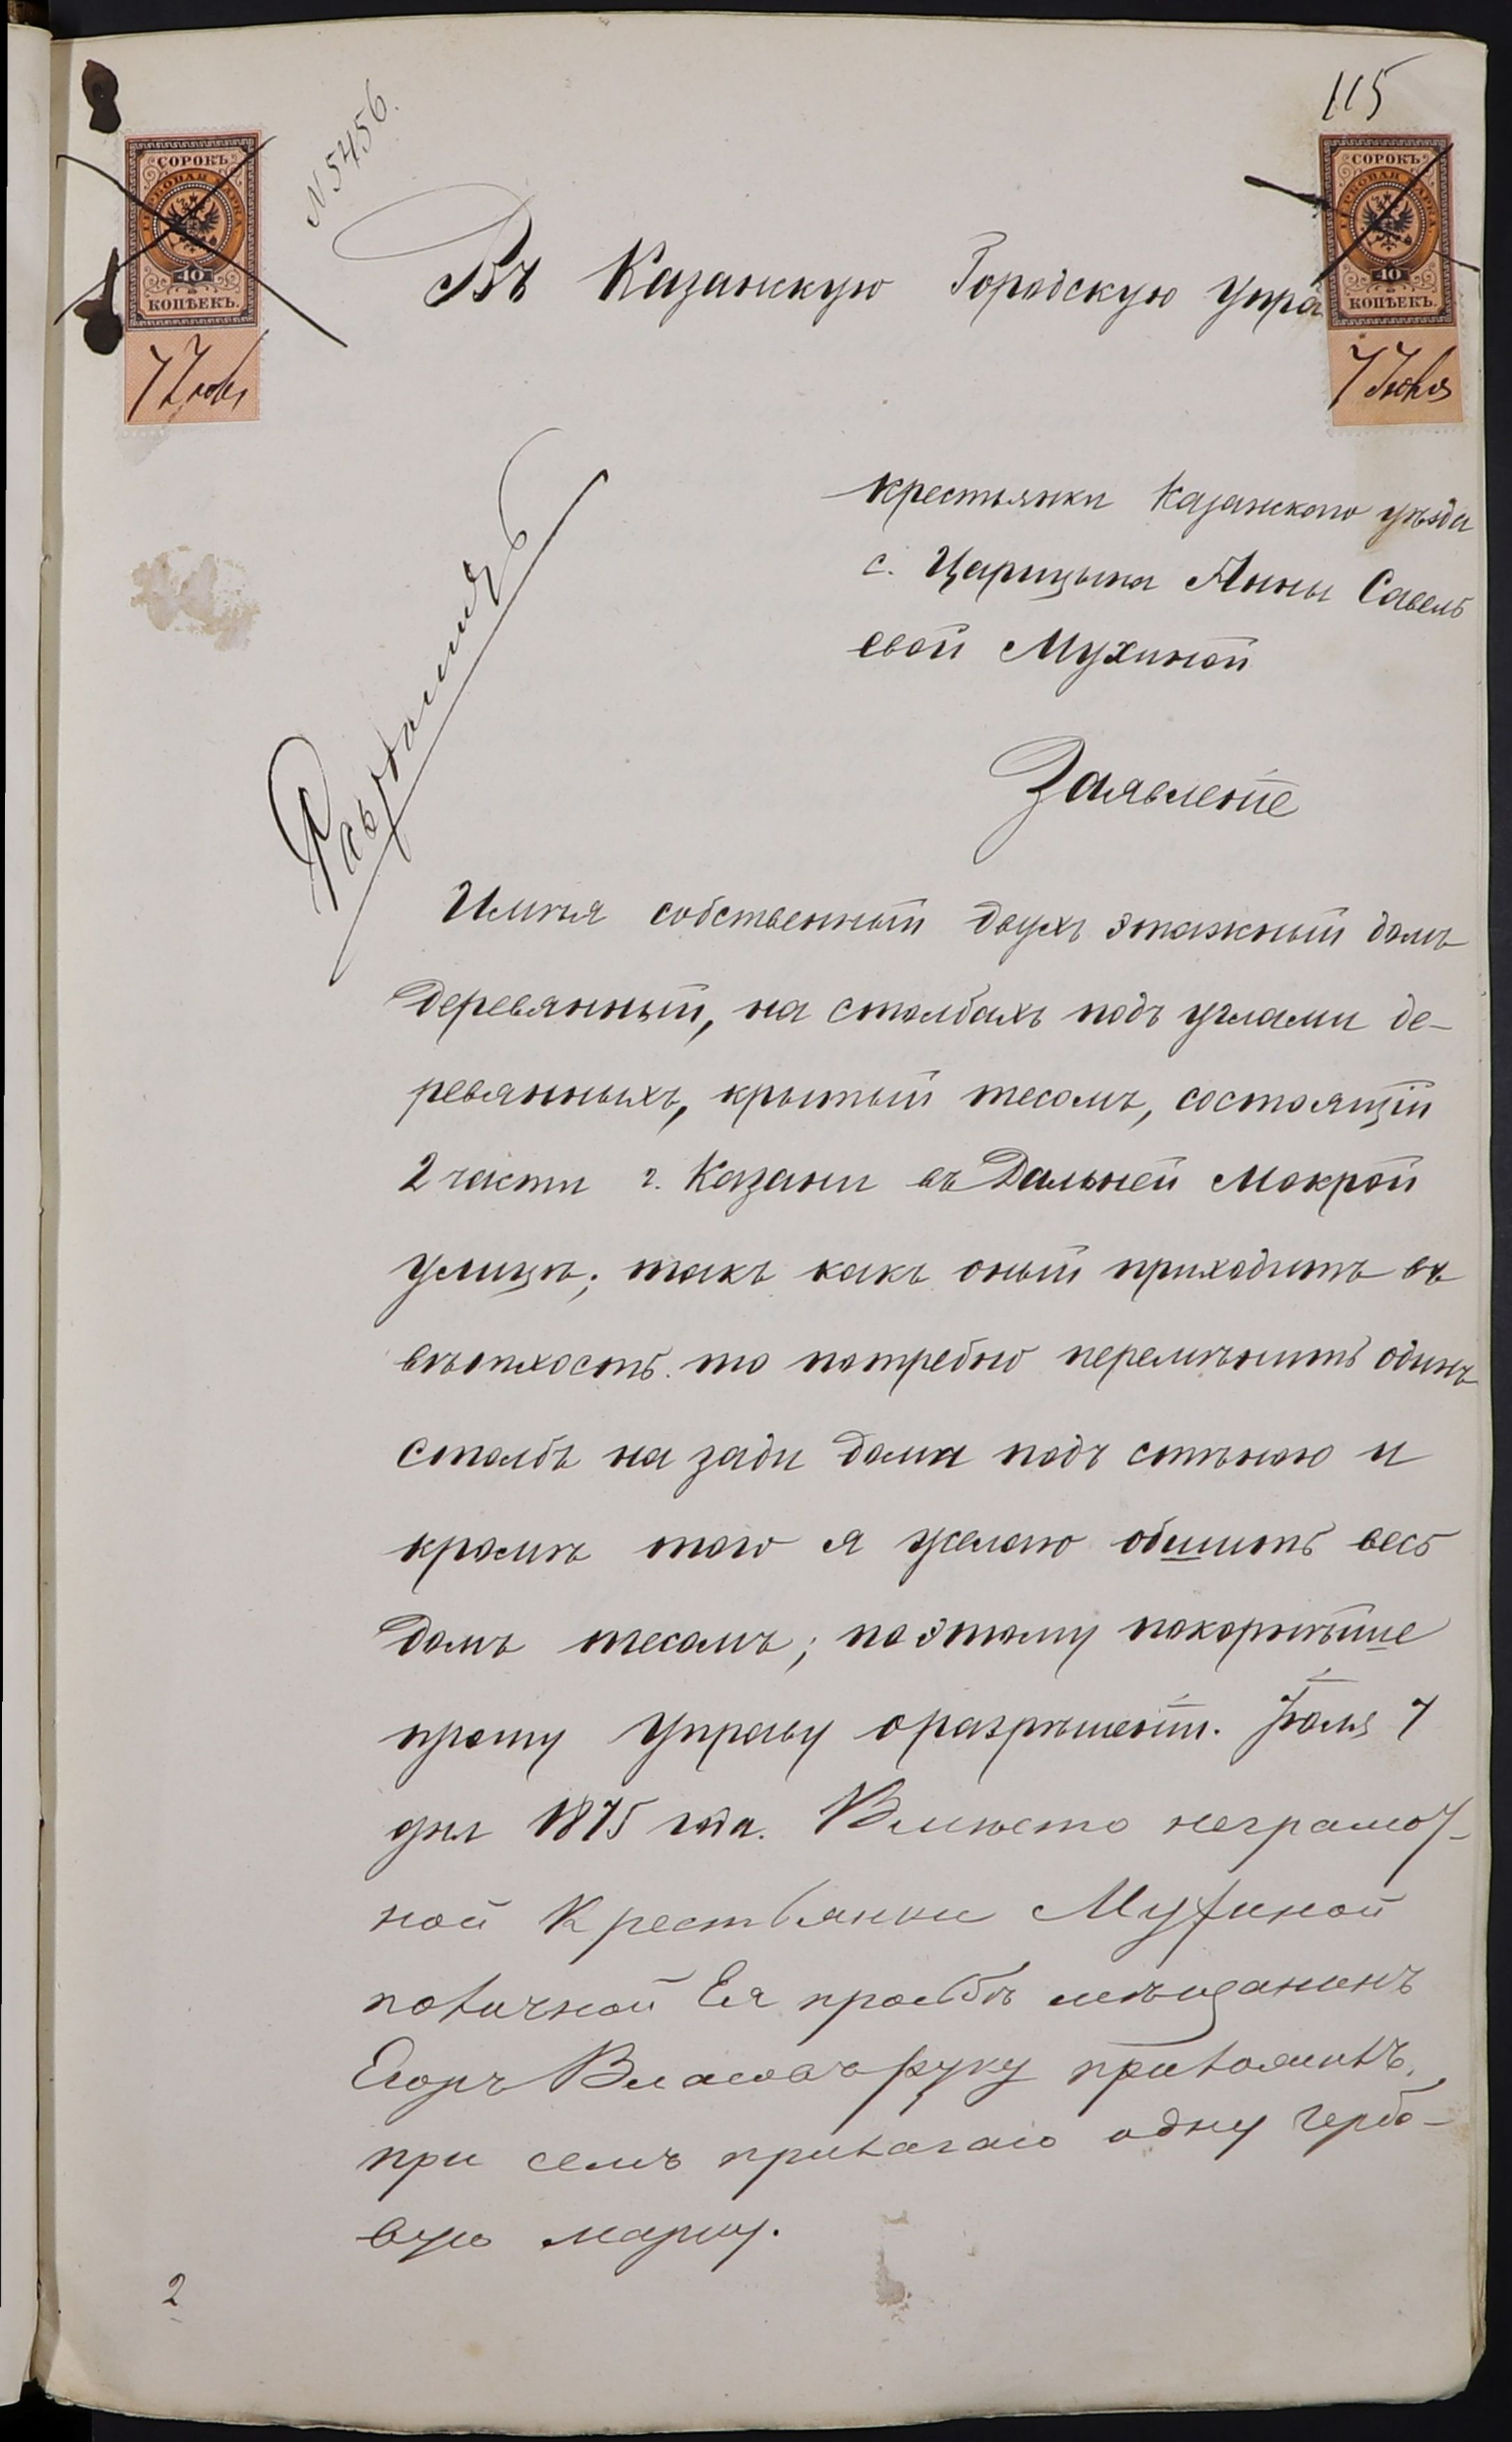 115
N 5456.
СОРОКЪ
ГЕРБОВАЯ МАРКА
40
КОПѢЕКЪ.
7 Июля
СОРОКЪ
ГЕРБОВАЯ МАРКА
40
КОПѢЕКЪ.
7 Июля
Въ Казанскую Городскую Упра
крестьянки Казанскаго уѣзда
с. Царицына Анны Савель
евой Мухиной
Заявленіе
Имѣя собственный двухъ этажный домъ
деревянный, на столбахъ подъ углами де-
ревянныхъ, крытый тесомъ, состоящій
2 части г. Казани въ Дальней Мокрой
улицѣ; такъ какъ оный приходитъ въ
вѣтхость. то потребно перемѣнить одинъ
столбъ на зади дома подъ стѣною и
кромѣ того я желаю обшить весь
домъ тесомъ; поэтому покорнѣйше
прошу Управу о разрѣшеніи. Іюля 7
дня 1875 года. Вмѣсто неграмот-
ной Крестьянки Мухиной
поличной Ея прозьбѣ мѣщанинъ
Егоръ Власовъ руку приложилъ.
при семъ прилагаю одну гербо-
вую марку.
2